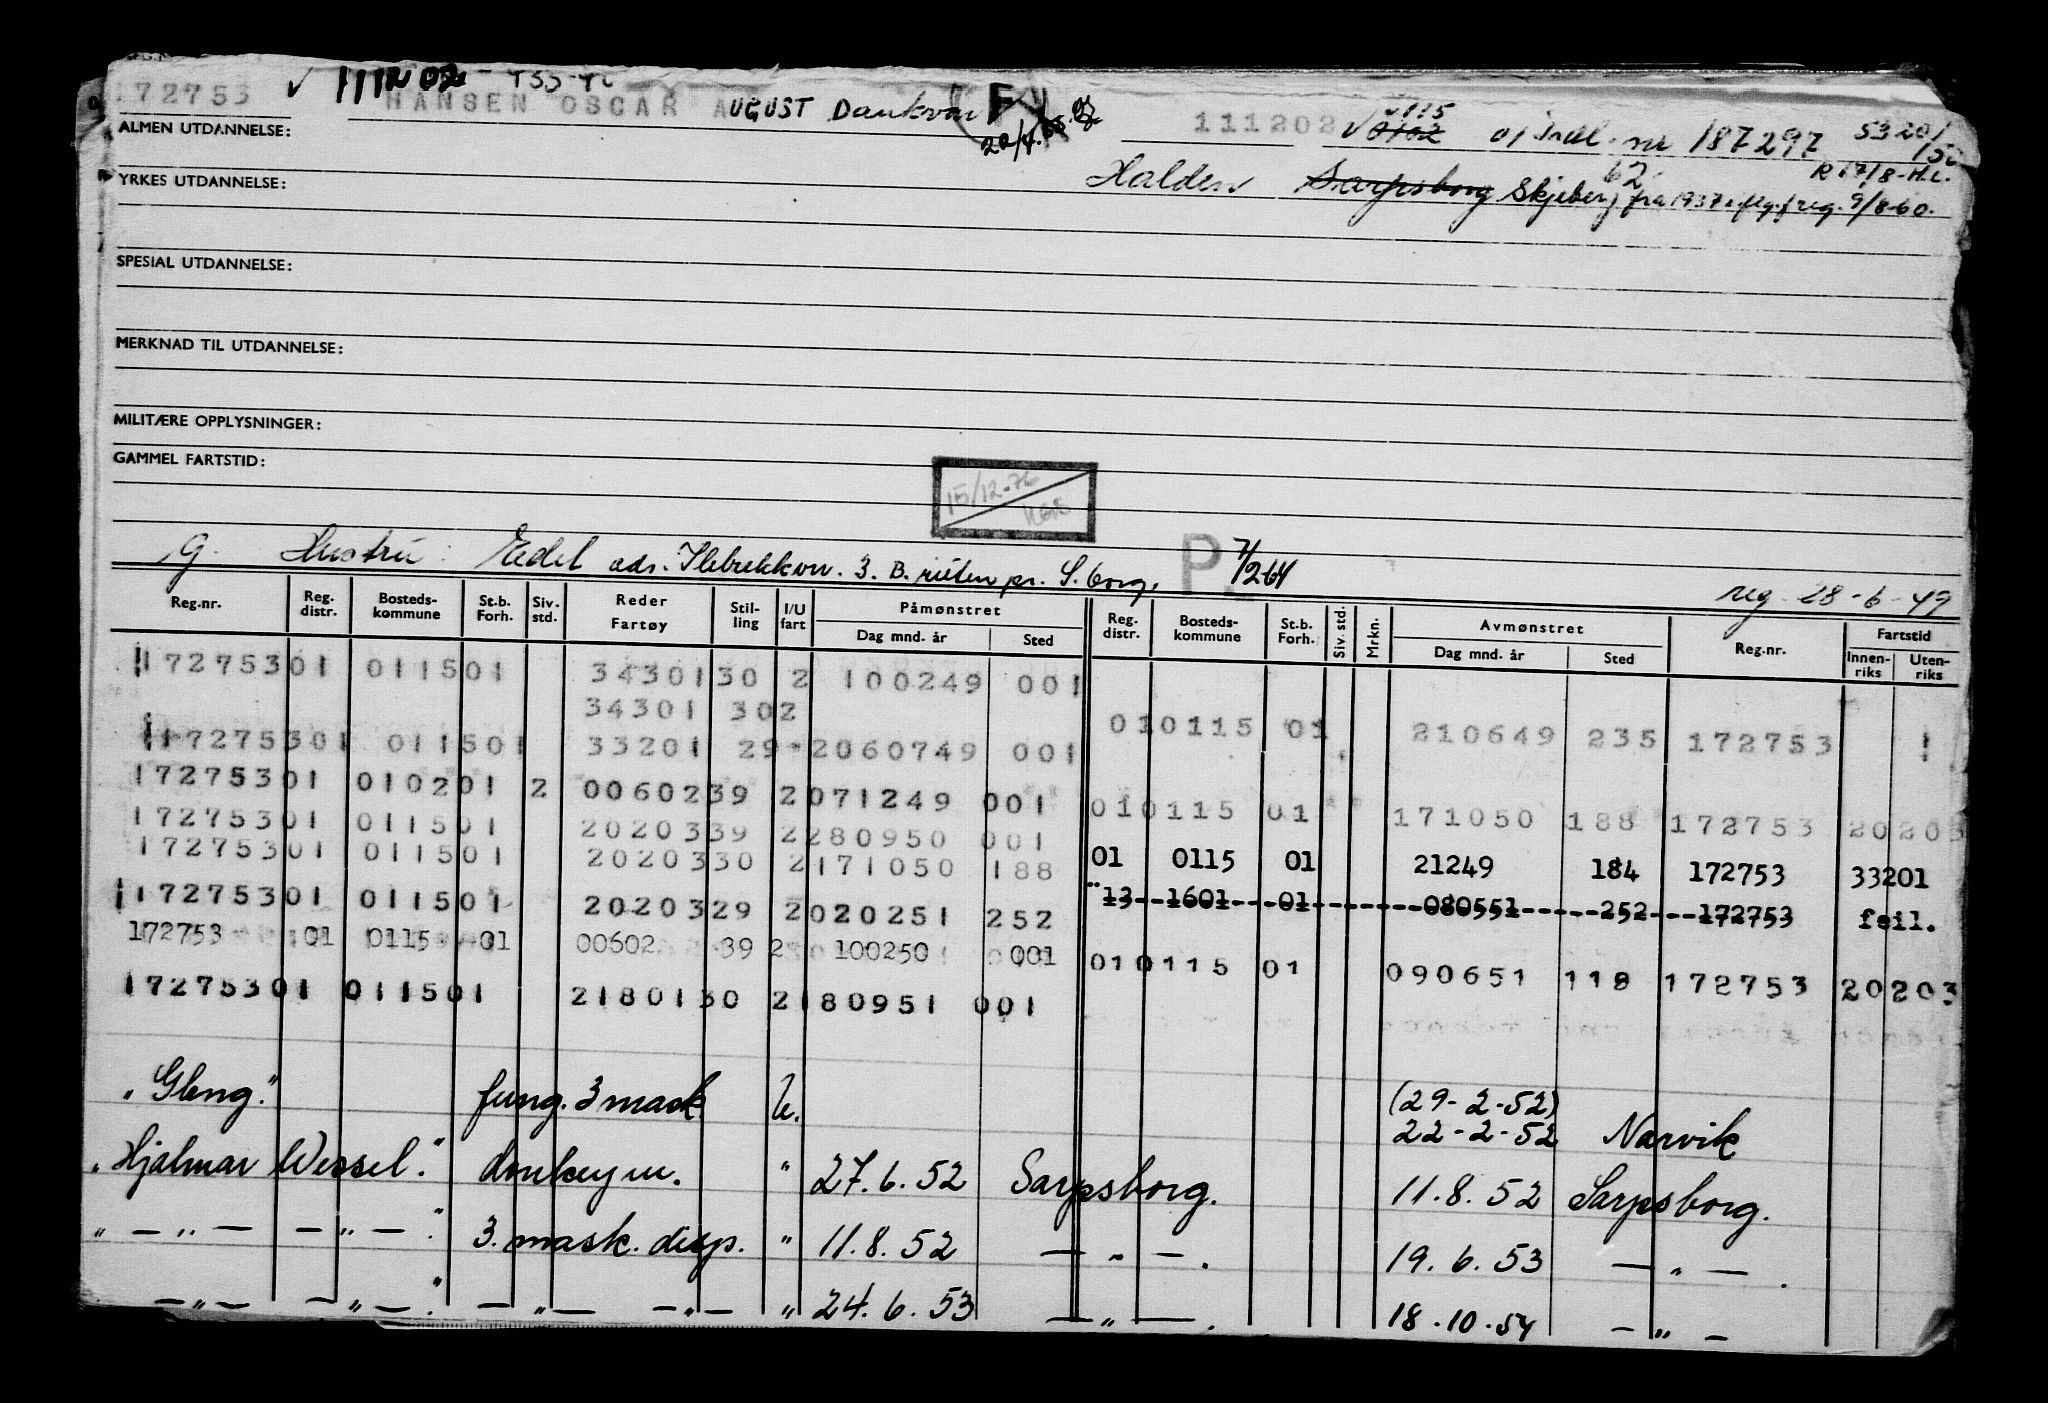 172753 ✓ 111202 HANSEN OSCAR AUGUST Dankvon F 20/4.65. 111202 ✓ 0115 0102 01 Indl. nr 187297 5320/
ALMEN UTDANNELSE:
62 R 17/8-H.L.
YRKES UTDANNELSE: Halden Sarpsborg Skjeberg fra 1937 i flg. freg. 9/8-60.
SPESIAL UTDANNELSE:
MERKNAD TIL UTDANNELSE:
MILITÆRE OPPLYSNINGER:
GAMMEL FARTSTID:
15/12-76
G. Hustru: Eidel adr. Ilebrekkvn. 3. B. ruten pr. S.borg. P 7/264 reg. 28-6-49
Reg.nr. Reg. distr. Bosteds-kommune St.b. Forh. Siv. std. Reder Fartøy Stil-ling I/U fart Påmønstret Dag mnd. år Sted Reg. distr. Bosteds-kommune St.b. Forh. Siv. std. Mrkn. Avmønstret Dag mnd. år Sted Reg.nr. Fartstid Innen-riks Uten-riks
172753 01 0115 01 34301 30 2 100249 001
34301 30 2
01 0115 01 210649 235 172753
172753 01 0115 01 33201 29 2 060749 001
172753 01 0102 01 2 00602 39 2 071249 001
01 0115 01 171050 188 172753 20203
172753 01 0115 01 20203 39 2 280950 001
172753 01 0115 01 20203 30 2 171050 188
01 0115 01 21249 184 172753 33201
172753 01 0115 01 20203 29 2 020251 252
13 1601 01 080551 252 172753 feil.
172753 01 0115 01 00602 39 2 100250 001
01 0115 01 090651 118 172753 20203
172753 01 0115 01 21801 30 2 180951 001
"Gleng." fung. 3 mask U. (29-2-52)
22-2-52 Narvik
"Hjalmar Wessel." donkeym. " 27.6.52 Sarpsborg. 11.8.52 Sarpsborg.
" — " — — " — ." 3. mask. disp. " 11.8.52 — " — . 19.6.53 — " — .
— " — — " — ." — " — — " — " 24.6.53 — " — . 18.10.54 — " —